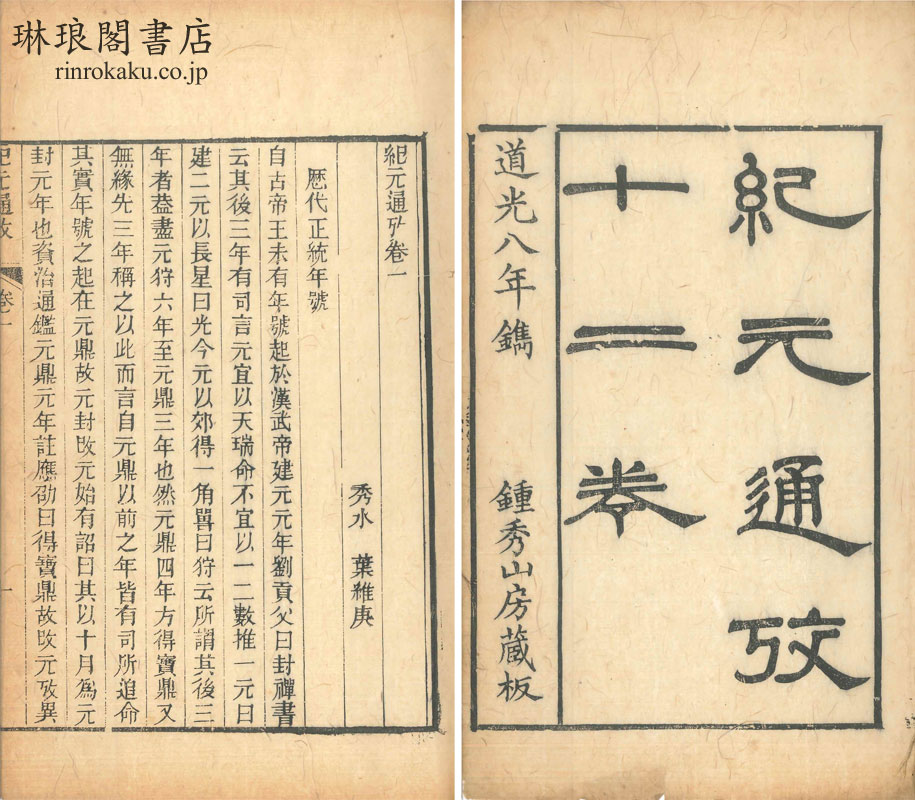 琳琅閣書店
rinrokaku.co.jp
紀元通攷
十二卷
道光八年鐫 鍾秀山房藏板
紀元通攷卷一
秀水 葉維庚
歷代正統年號
自古帝王未有年號起於漢武帝建元元年劉貢父曰封禪書
云其後三年有司言元宜以天瑞命不宜以一二數推一元曰
建二元以長星曰光今元以郊得一角獸曰狩云所謂其後三
年者葢盡元狩六年至元鼎三年也然元鼎四年方得寶鼎又
無緣先三年稱之以此而言自元鼎以前之年皆有司所追命
其實年號之起在元鼎故元封改元始有詔曰其以十月爲元
封元年也資治通鑑元鼎元年註應劭曰得寶鼎故改元攷異
紀元通攷 卷一 一